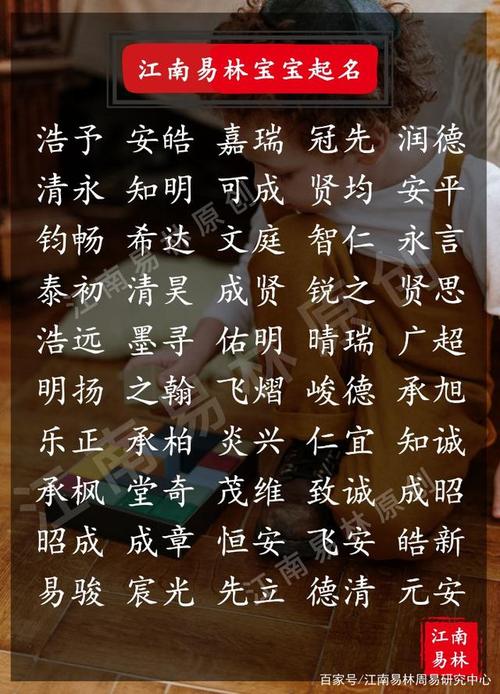 江南易林宝宝起名
浩予 安皓 嘉瑞 冠先 润德
清永 知明 可成 贤均 安平
钧畅 希达 文庭 智仁 永言
泰初 清昊 成贤 锐之 贤思
浩远 墨寻 佑明 晴瑞 广超
明扬 之翰 飞熠 峻德 承旭
乐正 承柏 炎兴 仁宜 知诚
承枫 堂奇 茂维 致诚 成昭
昭成 成章 恒安 飞安 皓新
易骏 宸光 先立 德清 元安
江南易林原创
江南易林原创
江南易林原创
江南
易林
百家号/江南易林周易研究中心